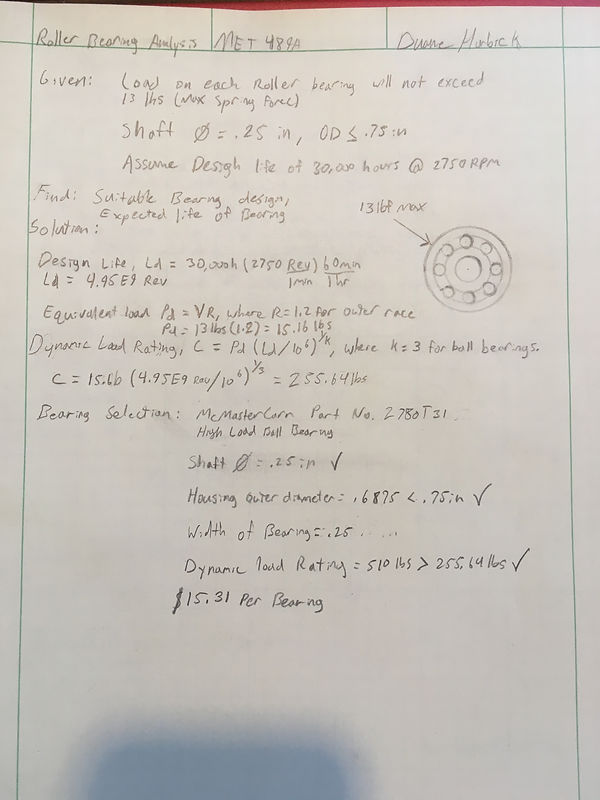 Roller Bearing Analysis MET 489A Duane Hinbick
Given: Load on each Roller bearing will not exceed
13 lbs (Max Spring Force)
Shaft Ø = .25 in, OD ≤ .75 in
Assume Design life of 30,000 hours @ 2750 RPM
Find: Suitable Bearing design,
Expected life of Bearing
13 lbf max
Solution:
Design Life, Ld = 30,000h (2750 Rev/1min) 60min/1hr
Ld = 4.95E9 Rev
Equivalent load Pd = VR, where R=1.2 for outer race
Pd = 13lbs(1.2) = 15.16 lbs
Dynamic Load Rating, C = Pd (Ld/10^6)^1/k, where k=3 for ball bearings.
C = 15.6lb (4.95E9 Rev/10^6)^1/3 = 255.64lbs
Bearing Selection: McMasterCarr Part No. 2780T31
High Load Ball Bearing
Shaft Ø = .25in ✓
Housing outer diameter = .6875 < .75in ✓
Width of Bearing = .25
Dynamic load Rating = 510 lbs > 255.64 lbs ✓
$15.31 Per Bearing